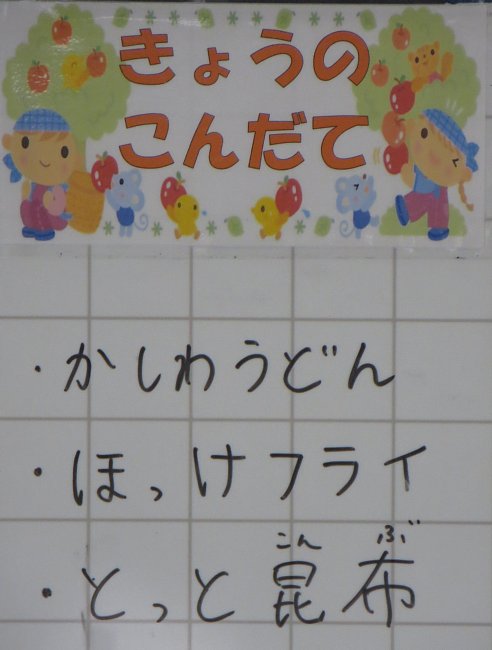 きょうの
こんだて
・かしわうどん
・ほっけフライ
・とっと昆布
こん ぶ